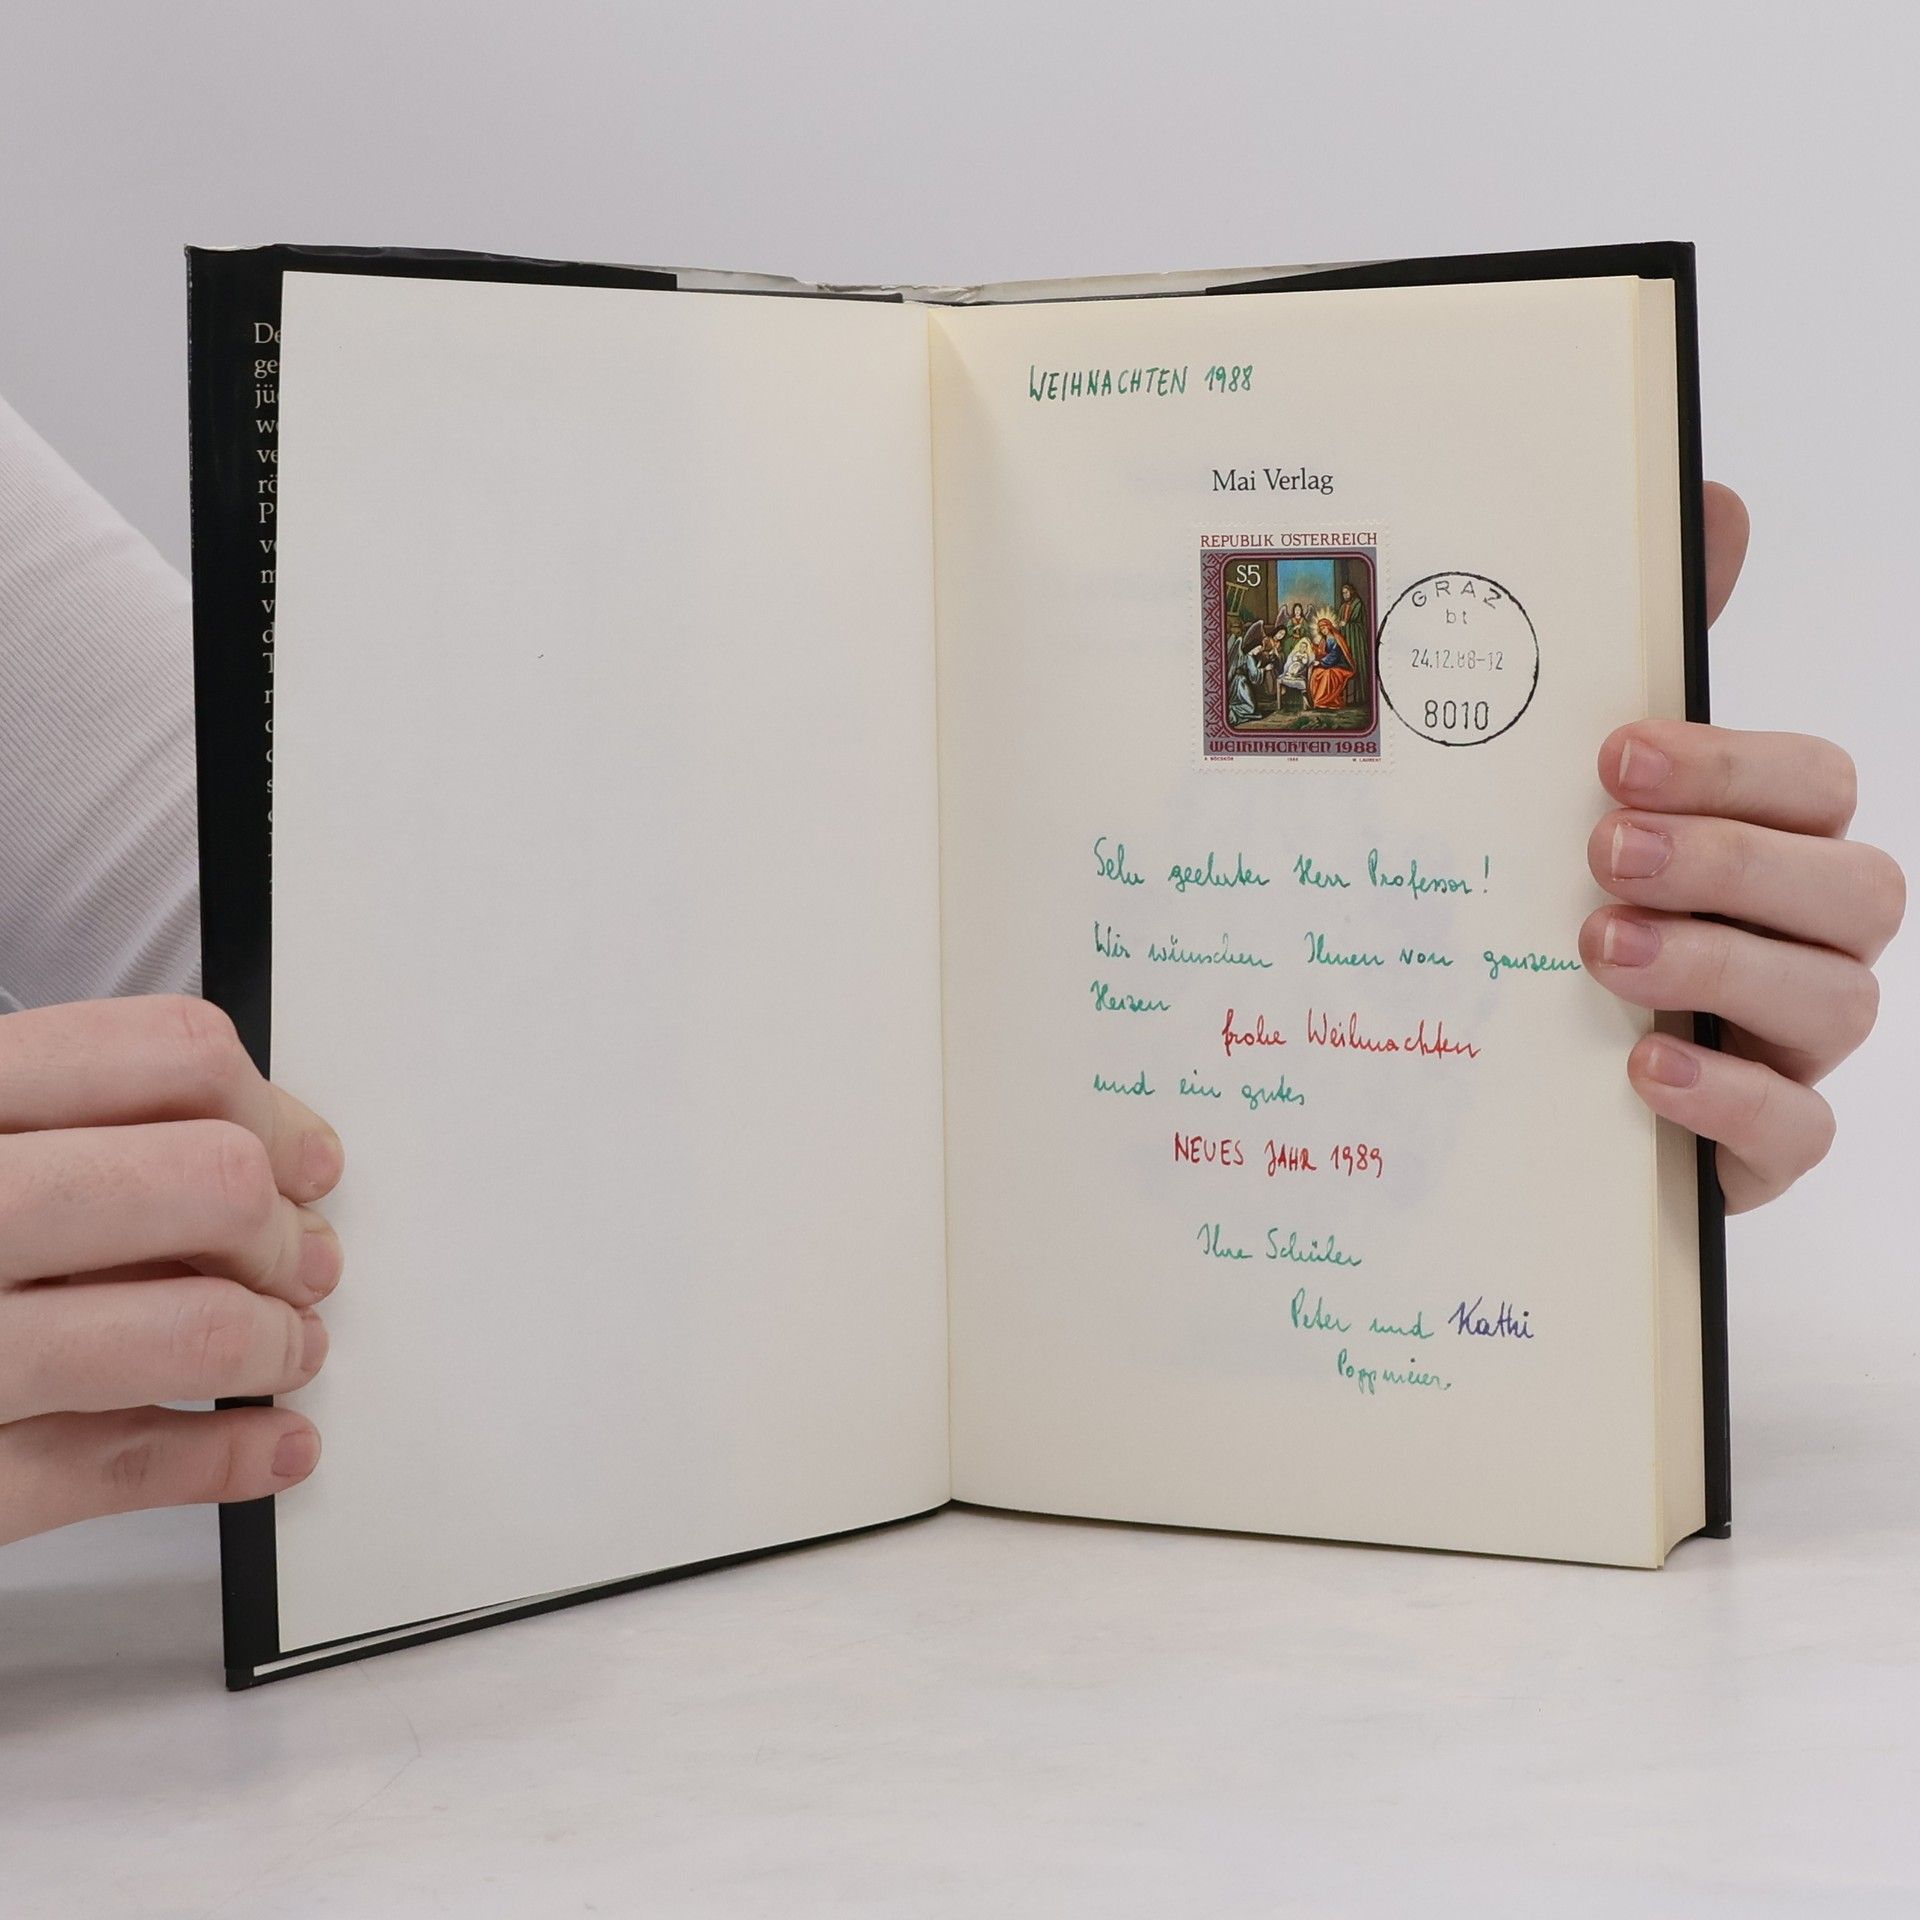 De
ge
jü
we
ve
rö
P
ve
m
v
d
T
WEIHNACHTEN 1988
Mai Verlag
REPUBLIK ÖSTERREICH
S5
WEIHNACHTEN 1988
A. BÖCSKÖR 1988 W. LAURENT
GRAZ
bt
24.12.88-12
8010
Sehr geehrter Herr Professor!
Wir wünschen Ihnen von ganzem
Herzen
frohe Weihnachten
und ein gutes
NEUES JAHR 1989
Ihre Schüler
Peter und Kathi
Poppmeier.